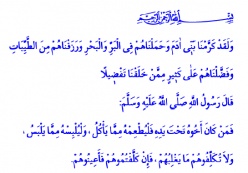 بِسْمِ اللهِ الرَّحْمٰنِ الرَّحِيمِ
وَلَقَدْ كَرَّمْنَا بَنِي اٰدَمَ وَحَمَلْنَاهُمْ فِي الْبَرِّ وَالْبَحْرِ وَرَزَقْنَاهُمْ مِنَ الطَّيِّبَاتِ
وَفَضَّلْنَاهُمْ عَلٰى كَثِيرٍ مِمَّنْ خَلَقْنَا تَفْضِيلًا
قَالَ رَسُولُ اللهِ صَلَّى اللهُ عَلَيْهِ وَسَلَّمَ:
فَمَنْ كَانَ أَخُوهُ تَحْتَ يَدِهِ فَلْيُطْعِمْهُ مِمَّا يَأْكُلُ، وَلْيُلْبِسْهُ مِمَّا يَلْبَسُ،
وَلَا تُكَلِّفُوهُمْ مَا يَغْلِبُهُمْ، فَإِنْ كَلَّفْتُمُوهُمْ فَأَعِينُوهُمْ.